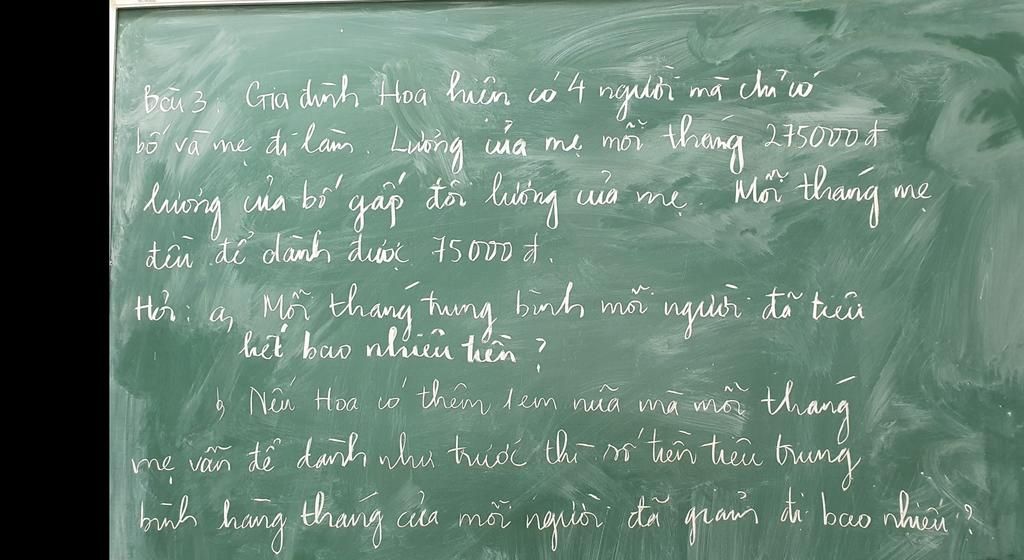 Bài 3: Gia đình Hoa hiện có 4 người mà chỉ có
bố và mẹ đi làm. Lương của mẹ mỗi tháng 275000đ
lương của bố gấp đôi lương của mẹ. Mỗi tháng mẹ
đều để dành được 75000đ.
Hỏi: a, Mỗi tháng trung bình mỗi người đã tiêu
hết bao nhiêu tiền?
b, Nếu Hoa có thêm 1 em nữa mà mỗi tháng
mẹ vẫn để dành như trước thì số tiền tiêu trung
bình hàng tháng của mỗi người đã giảm đi bao nhiêu?